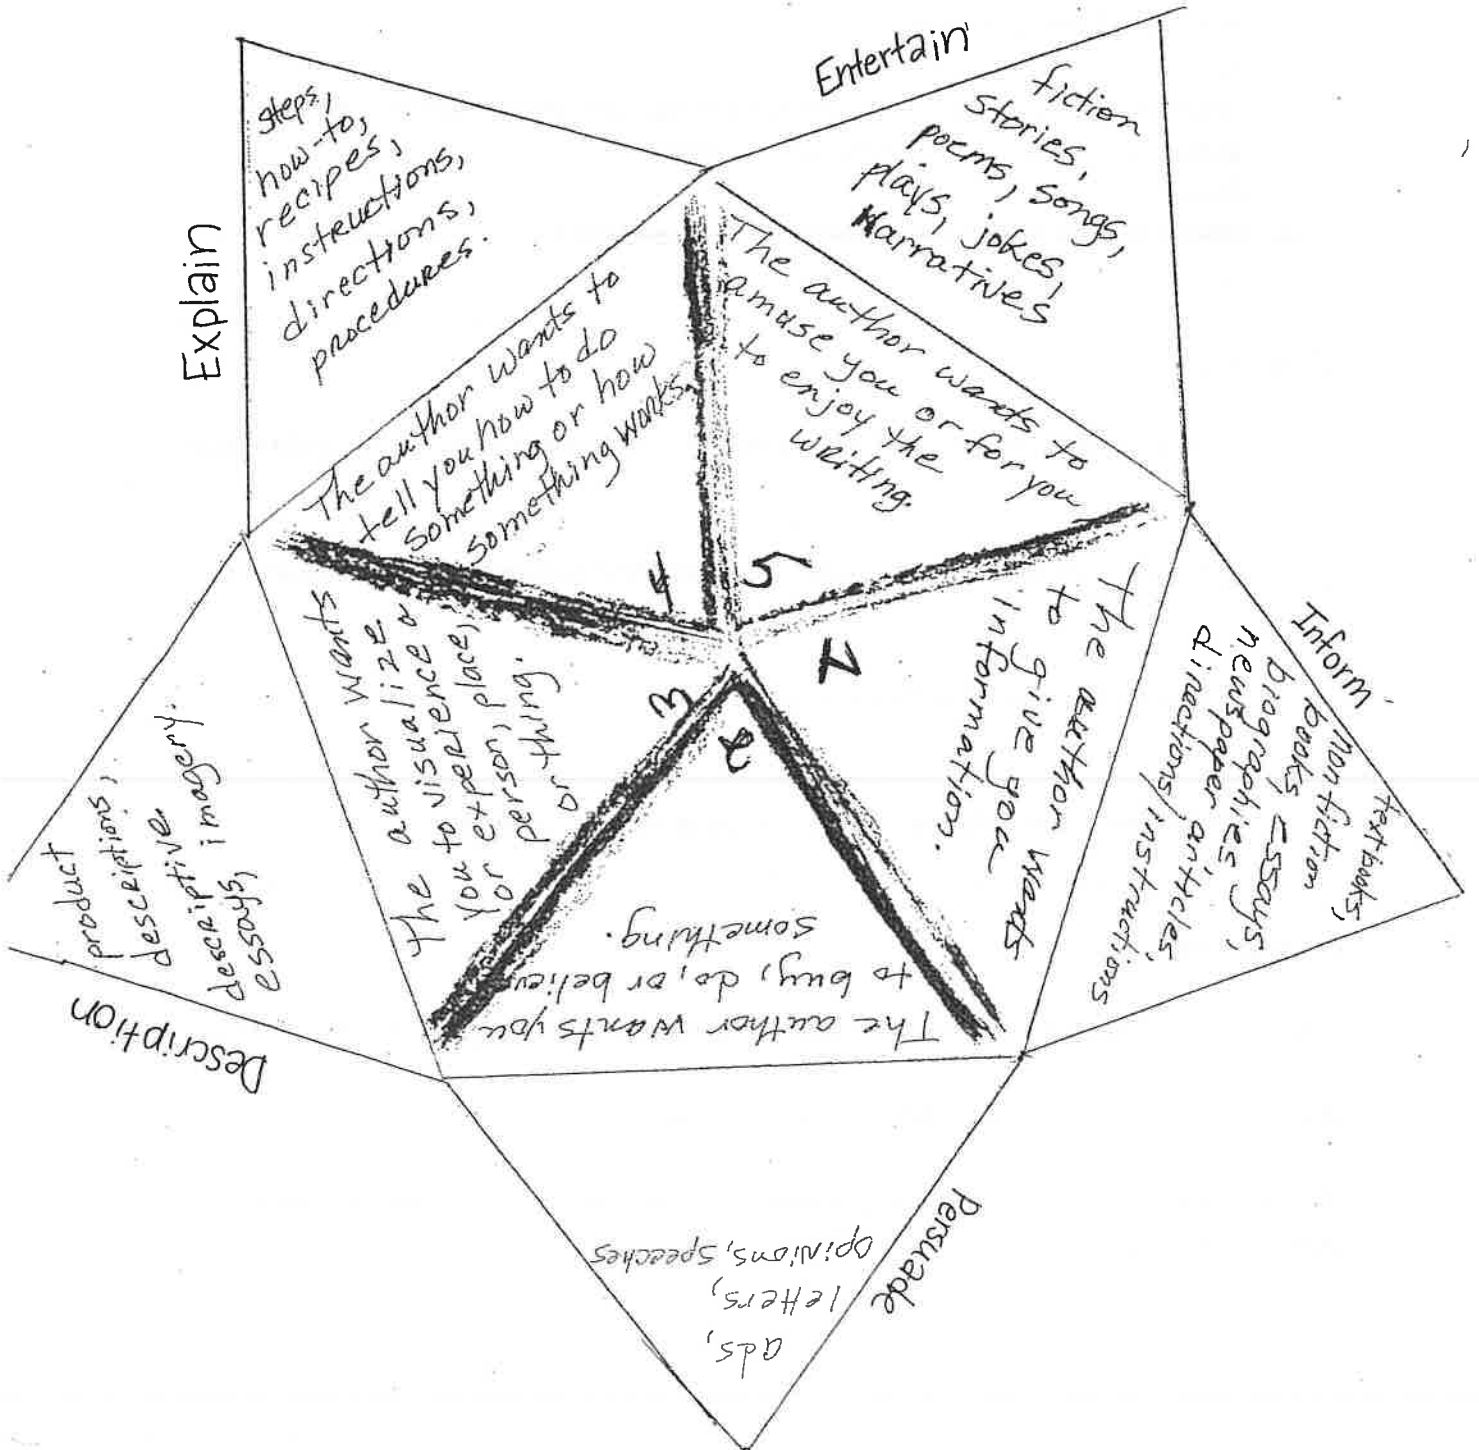 Explain
steps,
how-to,
recipes,
instructions,
directions,
procedures.
The author wants to
tell you how to do
something or how
something works.
4
Entertain
fiction
stories,
poems, songs,
plays, jokes,
Narratives
The author wants to
amuse you or for you
to enjoy the
writing.
5
Inform
textbooks,
nonfiction
books, essays,
biographies,
newspaper articles,
directions/instructions
The author wants
to give you
information.
1
Persuade
ads,
letters,
opinions, speeches
The author wants you
to buy, do, or believe
something.
2
Description
product
descriptions,
descriptive
essays, imagery.
The author wants
the visualize
you to visualize a
or experience
person, place,
or thing.
3